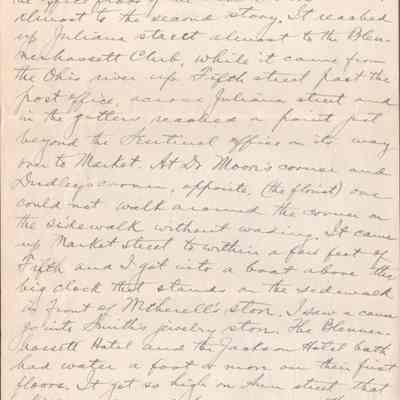 almost to the second story. It reached
up Juliana street almost to the Blen-
nerhassett Club, while it came from
the Ohio river up Fifth street past the
post office, across Juliana street and
in the gutters reached a point just
beyond the Sentinel office on its way
over to Market. At Dr Moor's corner and
Dudley's corner, opposite, (the florist) one
could not walk around the corner on
the sidewalk without wading. It came
up Market Street to within a few feet of
Fifth and I got into a boat above the
big clock that stands on the sidewalk
in front of Wetherell's store. I saw a canoe
go into Smith's jewelry store. The Blenner-
hassett Hotel and the Jackson Hotel both
had water a foot or more on their first
floors. It got so high on Ann street that